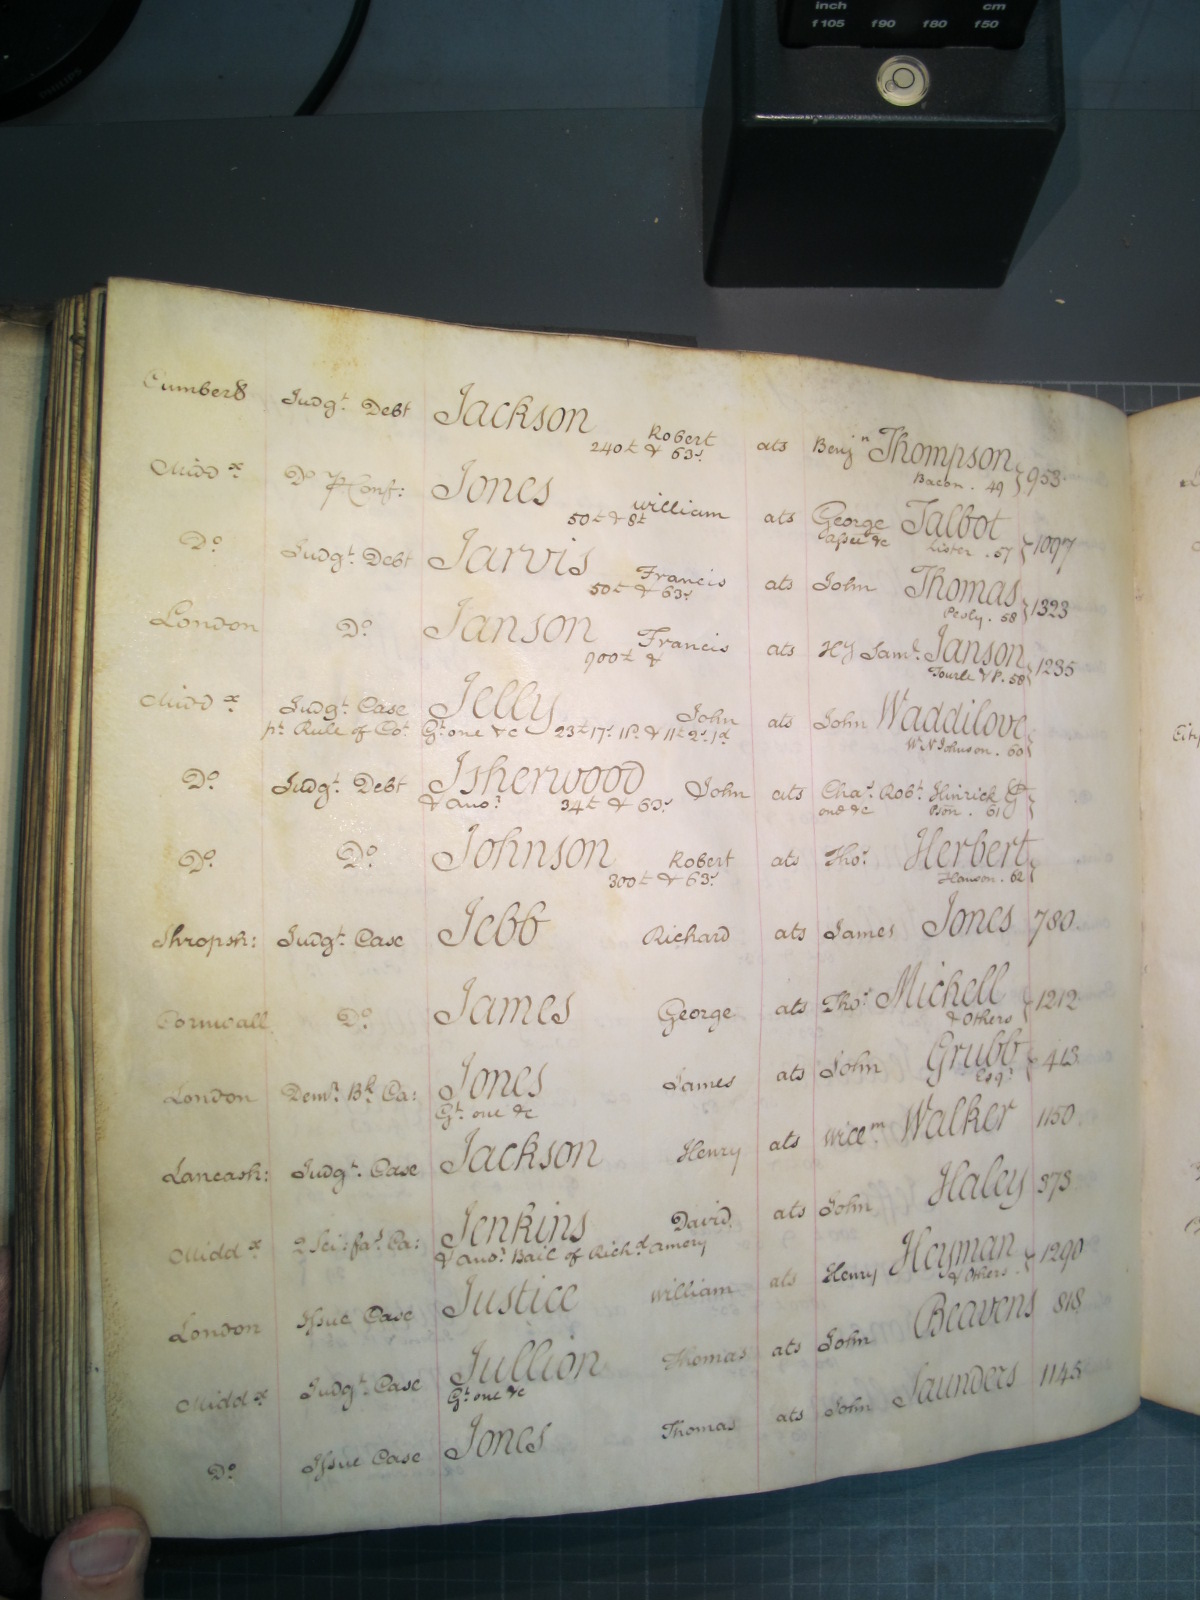 inch cm
f105 f90 f80 f50
PHILIPS
Cumberd Judgt. Debt Jackson Robert ats Benjn Thompson 953
240£ & 63s Bacon. 49
Middx Do Conf: Jones William ats George Talbot 1097
50£ & 8£ assee &c Lister. 57
Do Judgt. Debt Jarvis Francis ats John Thomas 1323
50£ & 63s 58
London Do Janson Francis ats Hy Saml. Janson 1235
900£ & Tourle & P. 58
Middx Judgt. Case Jelly John ats John Waddilove
pt. Rule of Cot. Gt. one &c 23£ 17s. 11d. & 11£ 2s. 1d. W N Johnson. 60
Do Judgt. Debt Isherwood John ats Chas. Robt. Hinrick Gt
& anor. 34£ & 63s one &c Pson. 61
Do Do Johnson Robert ats Thos. Herbert
300£ & 63s Hanson. 62
Shropsh: Judgt. Case Jebb Richard ats James Jones 780
Cornwall Do James George ats Thos. Michell 1212
& Others
London Demr. Bk. Ca: Jones James ats John Grubb 413
Gt. one &c Esqr.
Lancash: Judgt. Case Jackson Henry ats Walker 1150
Middx 2 Sci: fas. Ca: Jenkins David ats John Haley 373
& anor. Bail of Richd. Amery
London Issue Case Justice William ats Henry Heyman 1290
& Others
Middx Judgt. Case Jullion Thomas ats John Beavens 818
Gt. one &c
Do Issue Case Jones Thomas ats John Saunders 1145